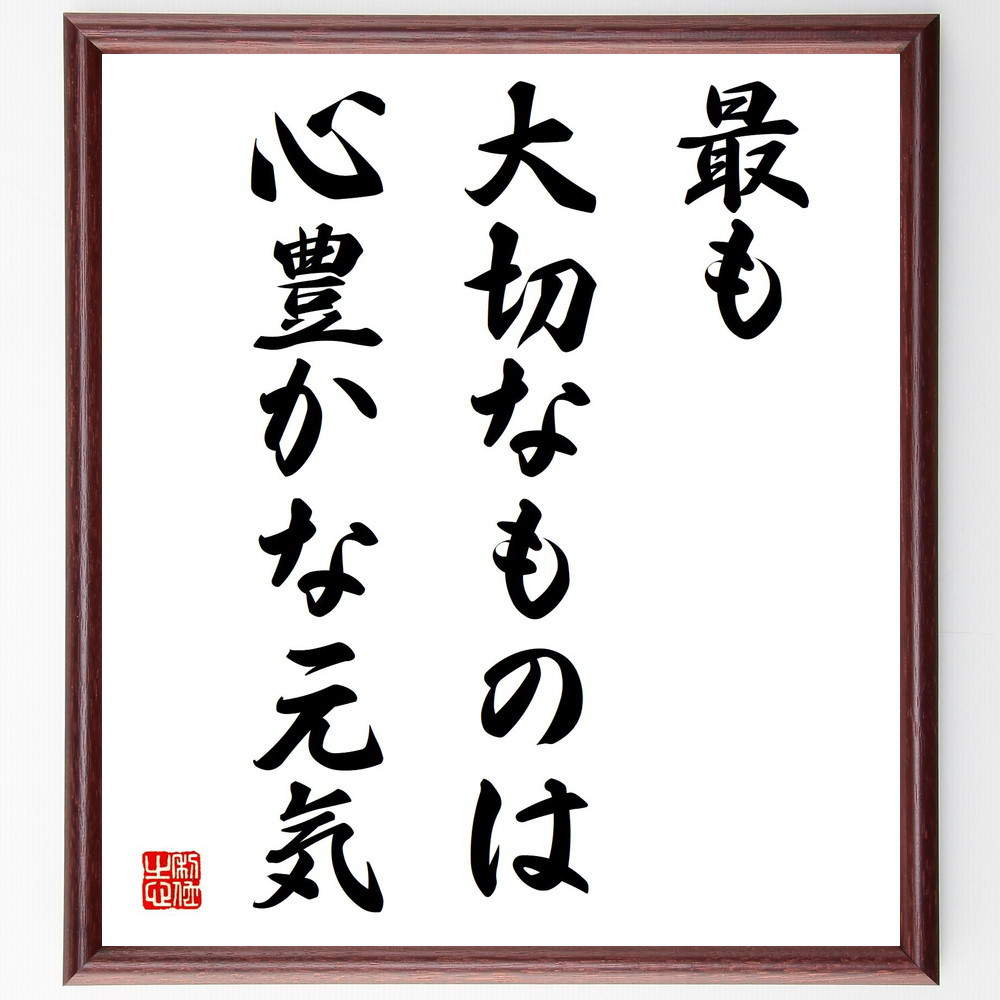 最も
大切なものは
心豊かな元気